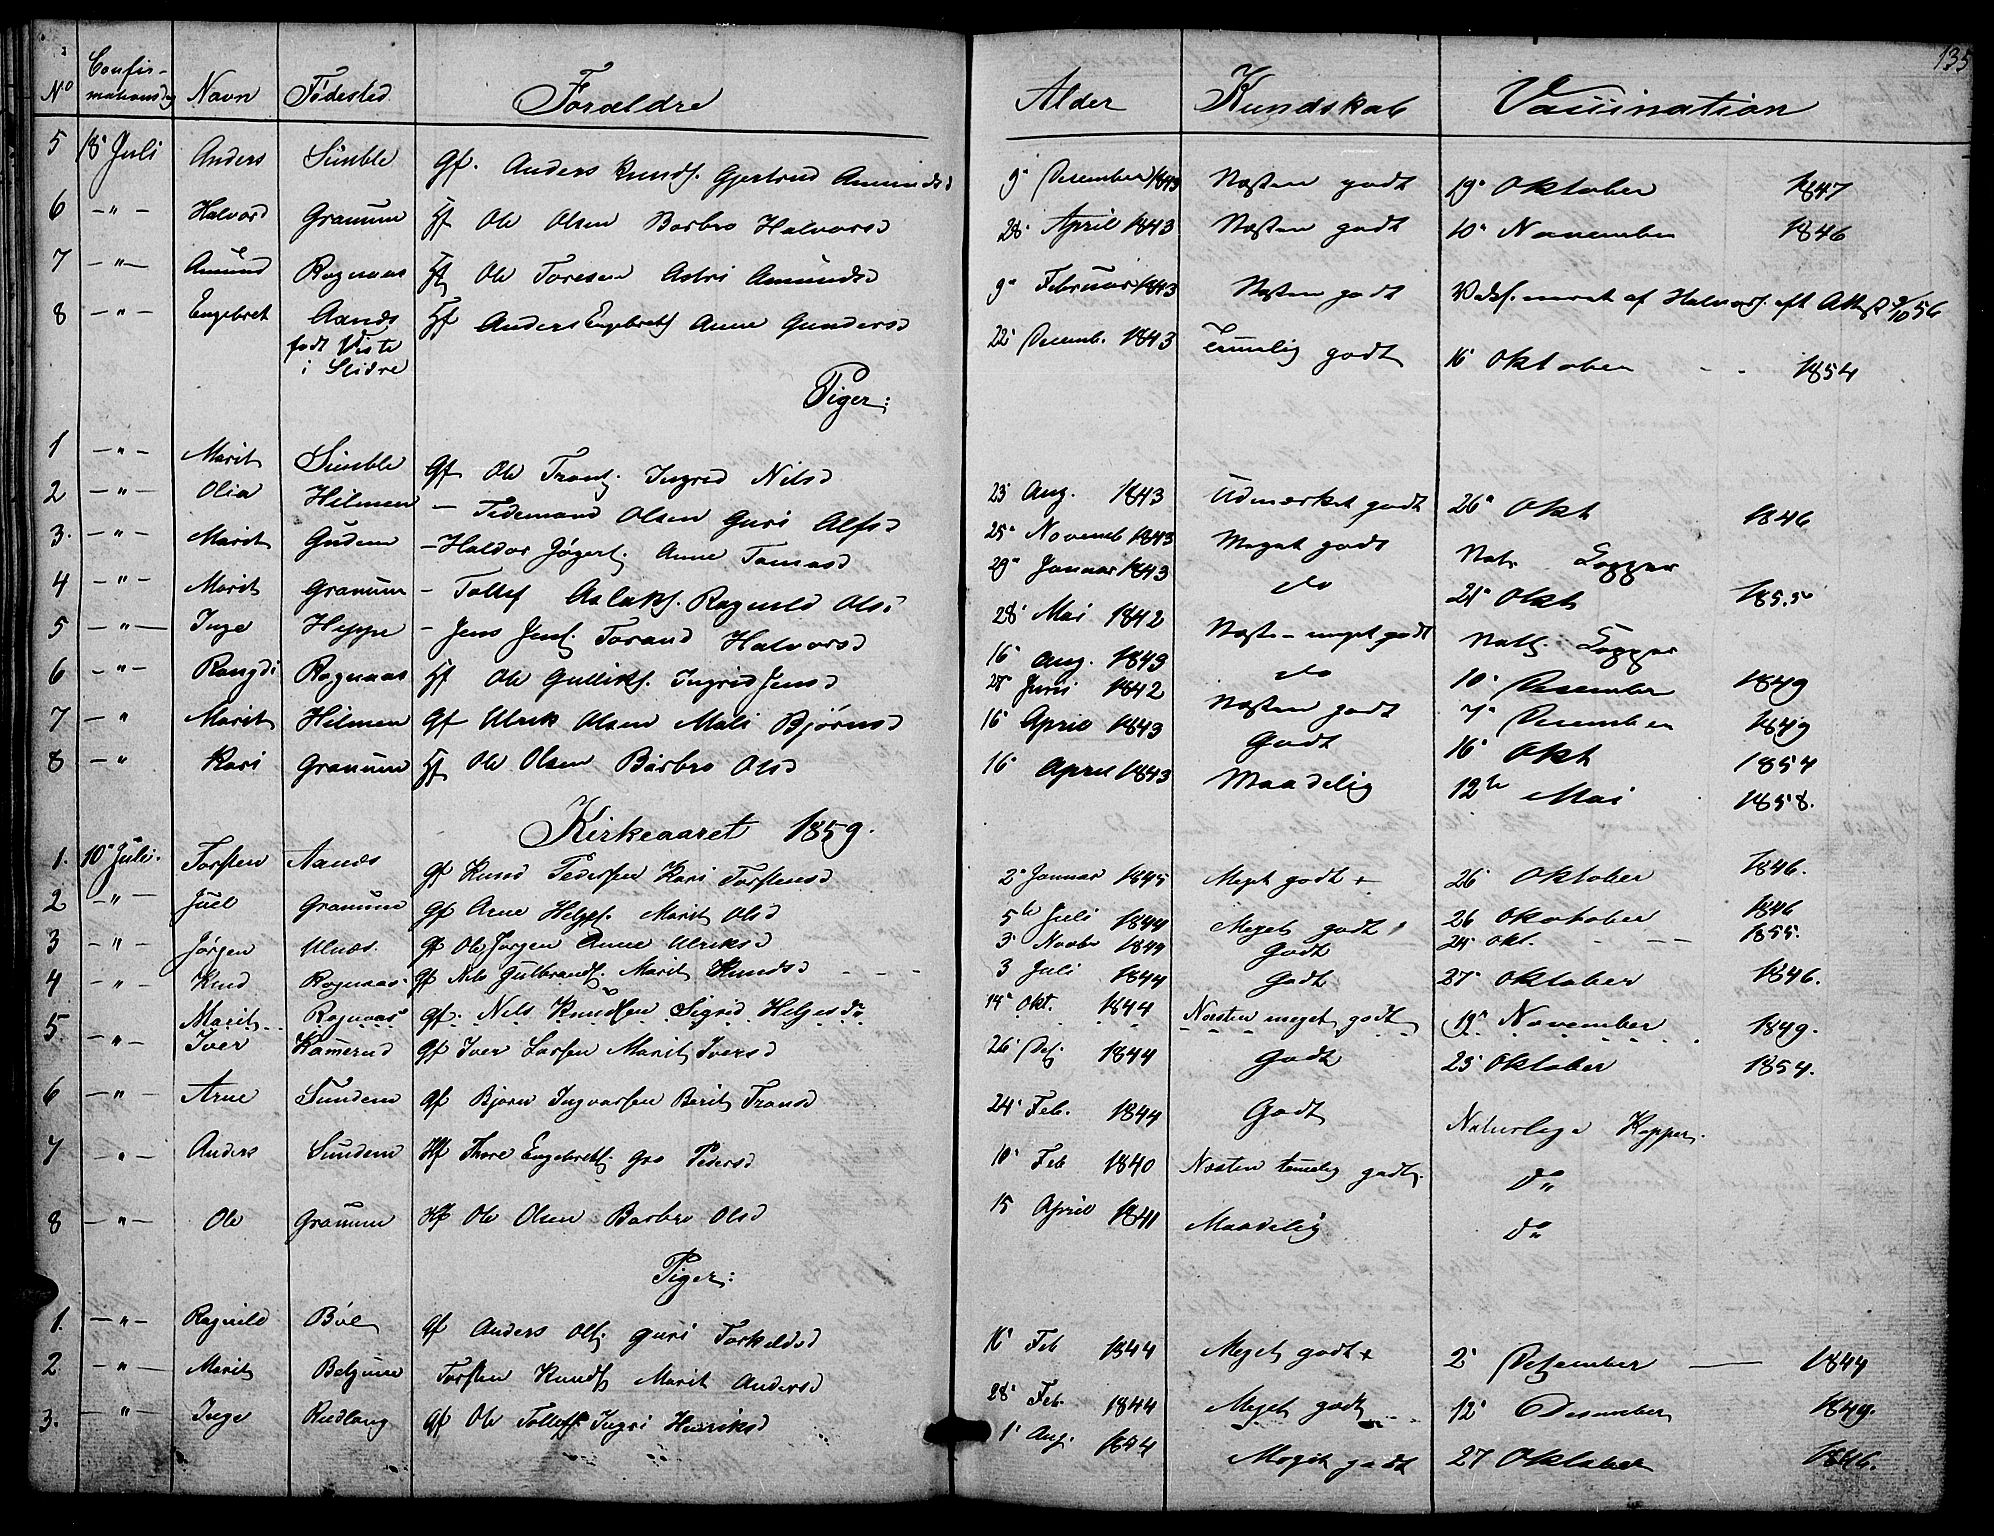 135
No Confirmationsdag Navn Fødested Forældre Alder Kundskab Vaccination
5 18 Juli Anders Simble Gf. Anders Knuds. Gjertrud Amundsd 9 Desember 1843 Næsten godt 19 Oktober 1847
6 -"- Halvord Granum Hf Ole Olsen Barbro Halvorsd 28 April 1843 Næsten godt 10 November 1846
7 -"- Amund Rognaas Hf Ole Toresen Astri Amundsd 9 Februar 1843 Næsten godt af Halvors. eft Attest 9/10 56
8 -"- Engebret Aanæs Hf Anders Engebrets Anne Gundersd 22 Desemb. 1843 Temelig godt 16 Oktober - - 1854
født Viste
i Slidre
Piger:
1 -"- Marit Simble Gf Ole Trons. Ingrid Nilsd 23 Aug. 1843 Udmærket godt 26 Okt 1846
2 -"- Olia Hilmen - Tidemand Olsen Guri Alfsd 25 Novemb 1843 Meget godt Nat. Kopper
3. -"- Marit Gudem - Haldor Jøgers. Anne Tomasd 29 Januar 1843 do 21 Okt 1855
4 -"- Marit Granum - Tollef Aslaks. Ragnild Olsd 28 Mai 1842 Næsten meget godt Natl. Kopper
5 -"- Inge Heppe - Jens Jens. Torand Halvorsd 16 Aug. 1843 do 10 Desember 1849
6 -"- Rangdi Rognaas Hf Ole Gulliks. Ingrid Jensd 28 Juni 1842 Næsten godt 7 Desember 1849
7 -" Marit Hilmen Gf Ulrik Olsen Mali Bjørnsd 16 April 1843 Godt 16 Okt 1854
8 -" Kari Granum Hf Ole Olsen Barbro Olsd 16 April 1843 Maadelig 12te Mai 1858.
Kirkeaaret 1859.
1. 10 Juli. Torsten Aanæs Gf Knud Pedersen Kari Torstensd 2 Januar 1845 Meget godt + 26 Oktober 1846.
2 -"- Juel Granum Gf Arne Helges. Marit Olsd 5te Juli 1844 Meget godt 26 Okotober 1846
3 -"- Jørgen Ulnæs. Gf Ole Jørgen Anne Ulriksd 3 Novbr 1844 Godt 24 Okt. - -- 1855.
4 -"- Knud Rognaas Gf Nils Gulbrands. Marit Knudsd - - - 3 Juli 1844 Godt 27 Oktober 1846.
Marit Rognaas Gf. Nils Knudsen Sigrid Helgesd 14 Okt. 1844 Næsten meget godt 19 November 1849.
5 -"- Iver Kamerud Gf Iver Larsen Marit Iversd 26 Des 1844 Godt 23 Oktober 1854.
6 -"- Arne Sundem Gf Bjørn Ingvarsen Berit Transd 24 Feb. 1844 Godt Naturlige Kopper.
7 -"- Anders Sundem Hf Thore Engebrets. Gro Pedersd 10 Feb 1840 Næsten temelig godt. do
8 -"- Ole Granum Hf Ole Olsen Barbro Olsd 15 April 1841 Maadelig do
Piger:
1. -"- Ragnild Bøle Gf Anders Ols. Guri Torkeldsd 16 Feb 1844 Meget godt + 2 Desember - 1847
2 -"- Marit Belgum Torsten Knuds Marit Andersd 28 Feb. 1844 Meget godt 12 Desember 1849.
3. -"- Inge Rudlang Gf Ole Tollefs. Ingri Henriksd 1 Aug. 1844 Meget godt 27 Oktober 1846.